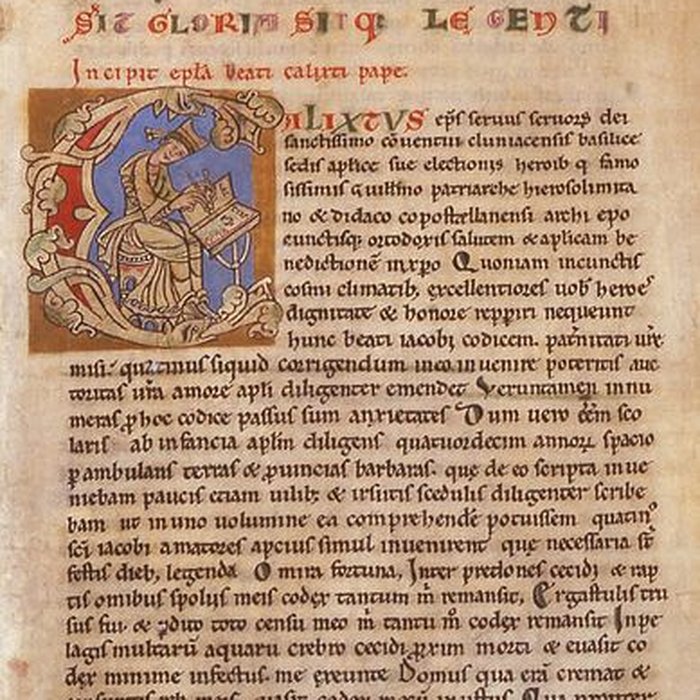 SIT GLORIA SITQ; LEGENTI
Incipit epła beati calixti pape.
CALIXTVS ep̄s seruus seruoꝝ dei
sanctissimo cōuentui cluniacensis basilice
sedis aplice sue electionis heroib q famo
sissimis Guillmo patriarche hierosolimita
no & didaco copostellanensi archi epo
cunctisq; ortodoxis salutem & aplicam be
nedictionē in xpo Quoniam in cunctis
cosmi climatib; excellentiores uob heroes
dignitate & honore repperi nequeunt
hunc beati iacobi codicem. pat̄nitati ur̄e
misi: quatinus siquid corrigendum in eo inuenire poteritis auc
toritas ur̄a amore apli diligenter emendet Veruntamen innu
meras ꝓ hoc codice passus sum anxietates Dum uero eēm sco
laris ab infancia aplm diligens quatuordecim annoꝝ spacio
ꝑambulans terras & ꝓuincias barbaras. quę de eo scripta inue
niebam paucis etiam uilib; & irsutis scedulis diligenter scribe
bam ut in uno uolumine ea comprehendē potuissem quatin
sc̄i iacobi amatores apcius simul inuenirent quę necessaria s̄t
festis dieb, legenda O mira fortuna, Inter predones cecidi & rap
tis omibus spolijs meis codex tantum m̄ remansit, Ergastulis tru
sus fui & ꝑdito toto censu meo m̄ tantū m̊ codex remansit In pe
lagis multarū aquarū crebro cecidi ꝓxim morti & euasit co
dex minime infectus. me exeunte Domus qua erā cremat &